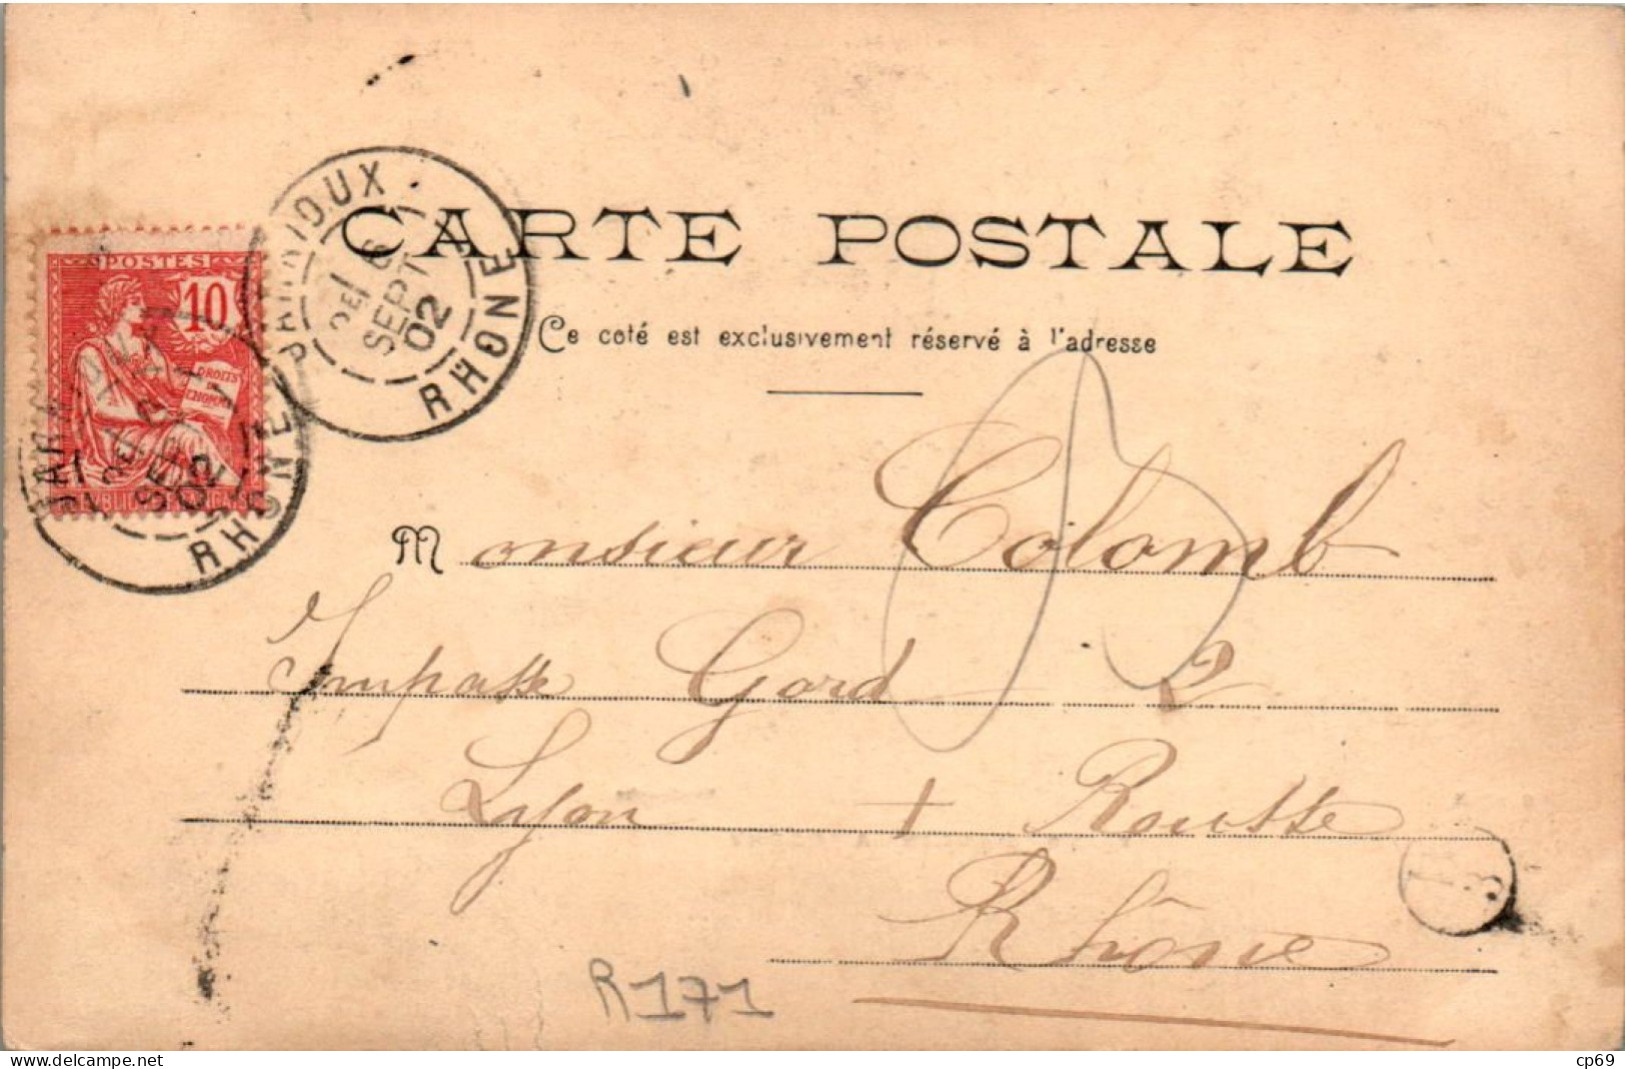 CARTE POSTALE
Ce coté est exclusivement réservé à l'adresse
POSTES
10
DROITS
PARDIOUX
2E/ 6
SEPT
02
RHONE
SEPT
02
RHONE
Monsieur Colomb
Impasse Gord 2
Lyon + Rousse
Rhône
R171
3
www.delcampe.net
cp69